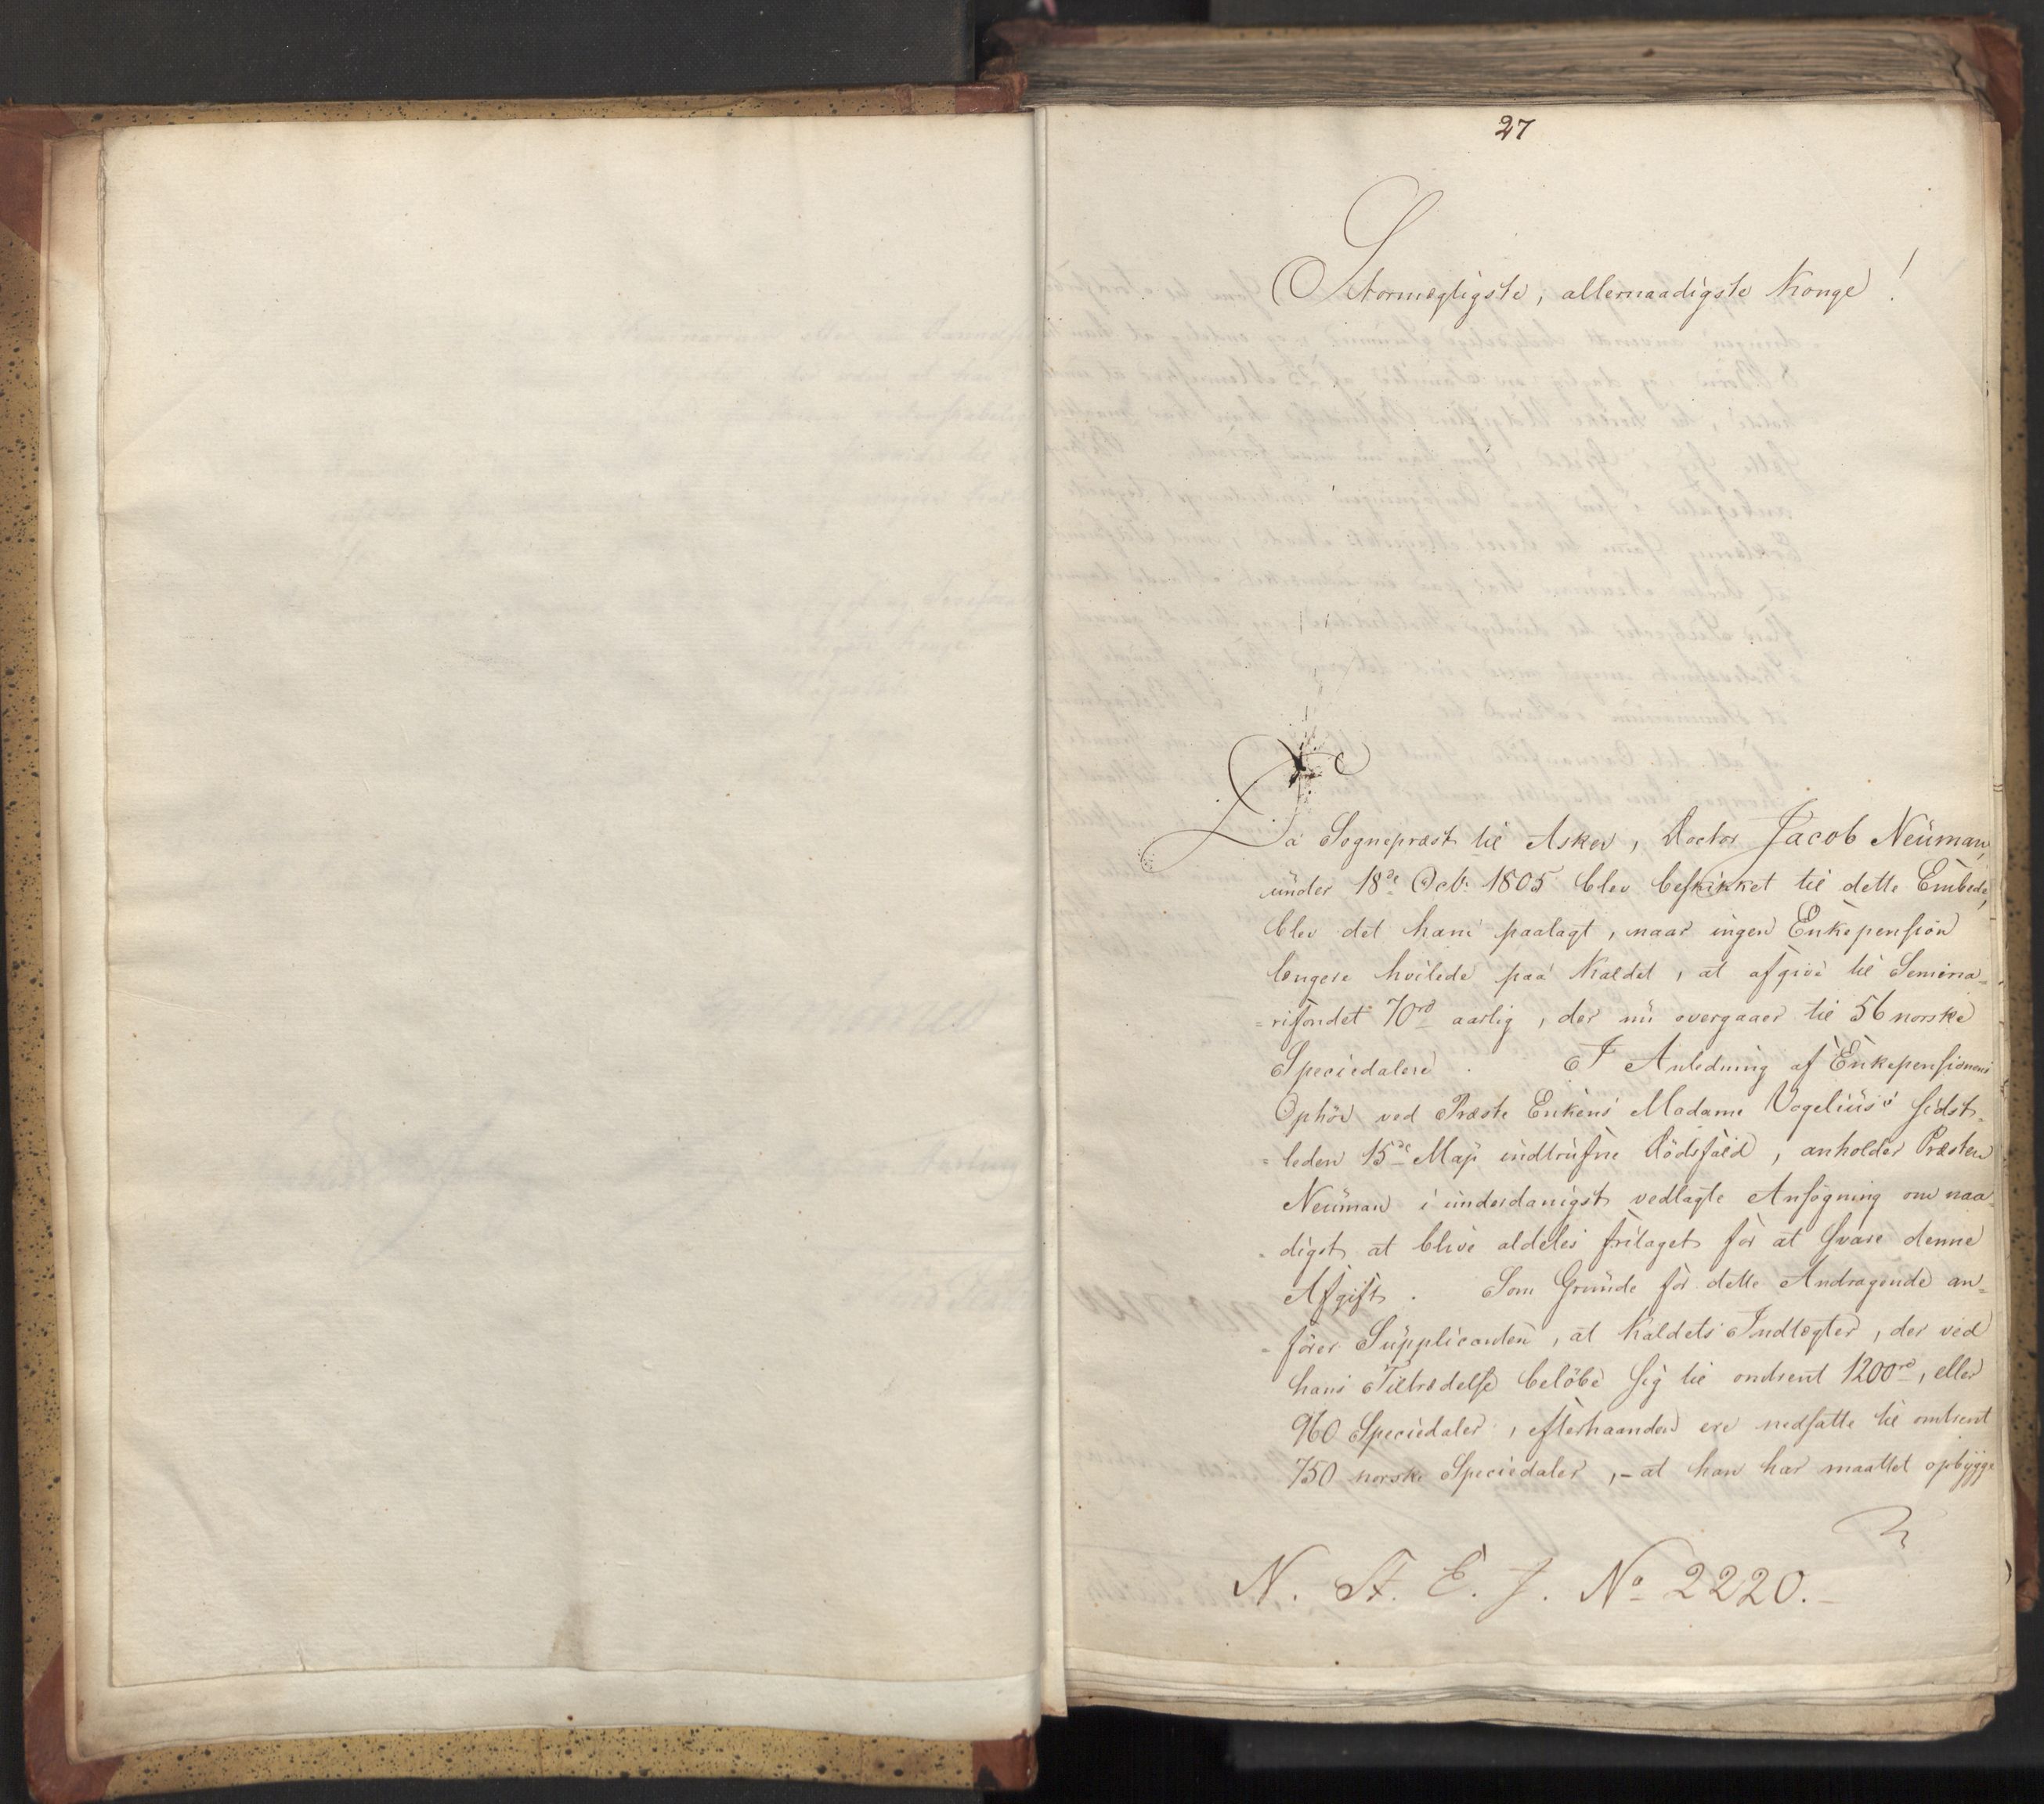 27
Stormægtigste, allernaadigste Konge!
Da Sognepræst til Asker, Doctor Jacob Neuman,
under 18de Octr 1805 blev beskikket til dette Embede,
blev det ham paalagt, naar ingen Enkepension
længere hvilede paa Kaldet, at afgive til Semina=
=rifondet 70rd aarlig, der nu overgaaer til 56 norske
Speciedalere. I Anledning af Enkepensionens
Ophør ved Præste Enkens Madame Vogelius's sidst=
=leden 15de Maji indtrufne Dødsfald, anholder Præsten
Neuman i underdanigst vedlagte Ansøgning om naa=
=digst at blive aldeles fritaget for at svare denne
Afgift. Som Grunde for dette Andragende an=
=fører Supplicanten, at Kaldets Indtægter, der ved
hans Tiltrædelse beløbe sig til omtrent 1200rd, eller
960 Speciedaler, efterhaanden ere nedsatte til omtrent
750 norske Speciedaler, - at han har maattet opbygge
N. St. E. J. No 2220.-